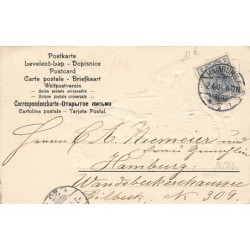 Postkarte
Levelező-Lap - Dopisnice
Postcard
Carte postale - Briefkaart
Weltpostverein
Union postale universelle
Unione postale universale
Correspondenzkarte-Открытое письмо
Cartolina postale - Tarjeta Postal
Herren C. A. Niemeier und
Hamburg
Wandsbeckerchaussee
Eilbeck No 309.